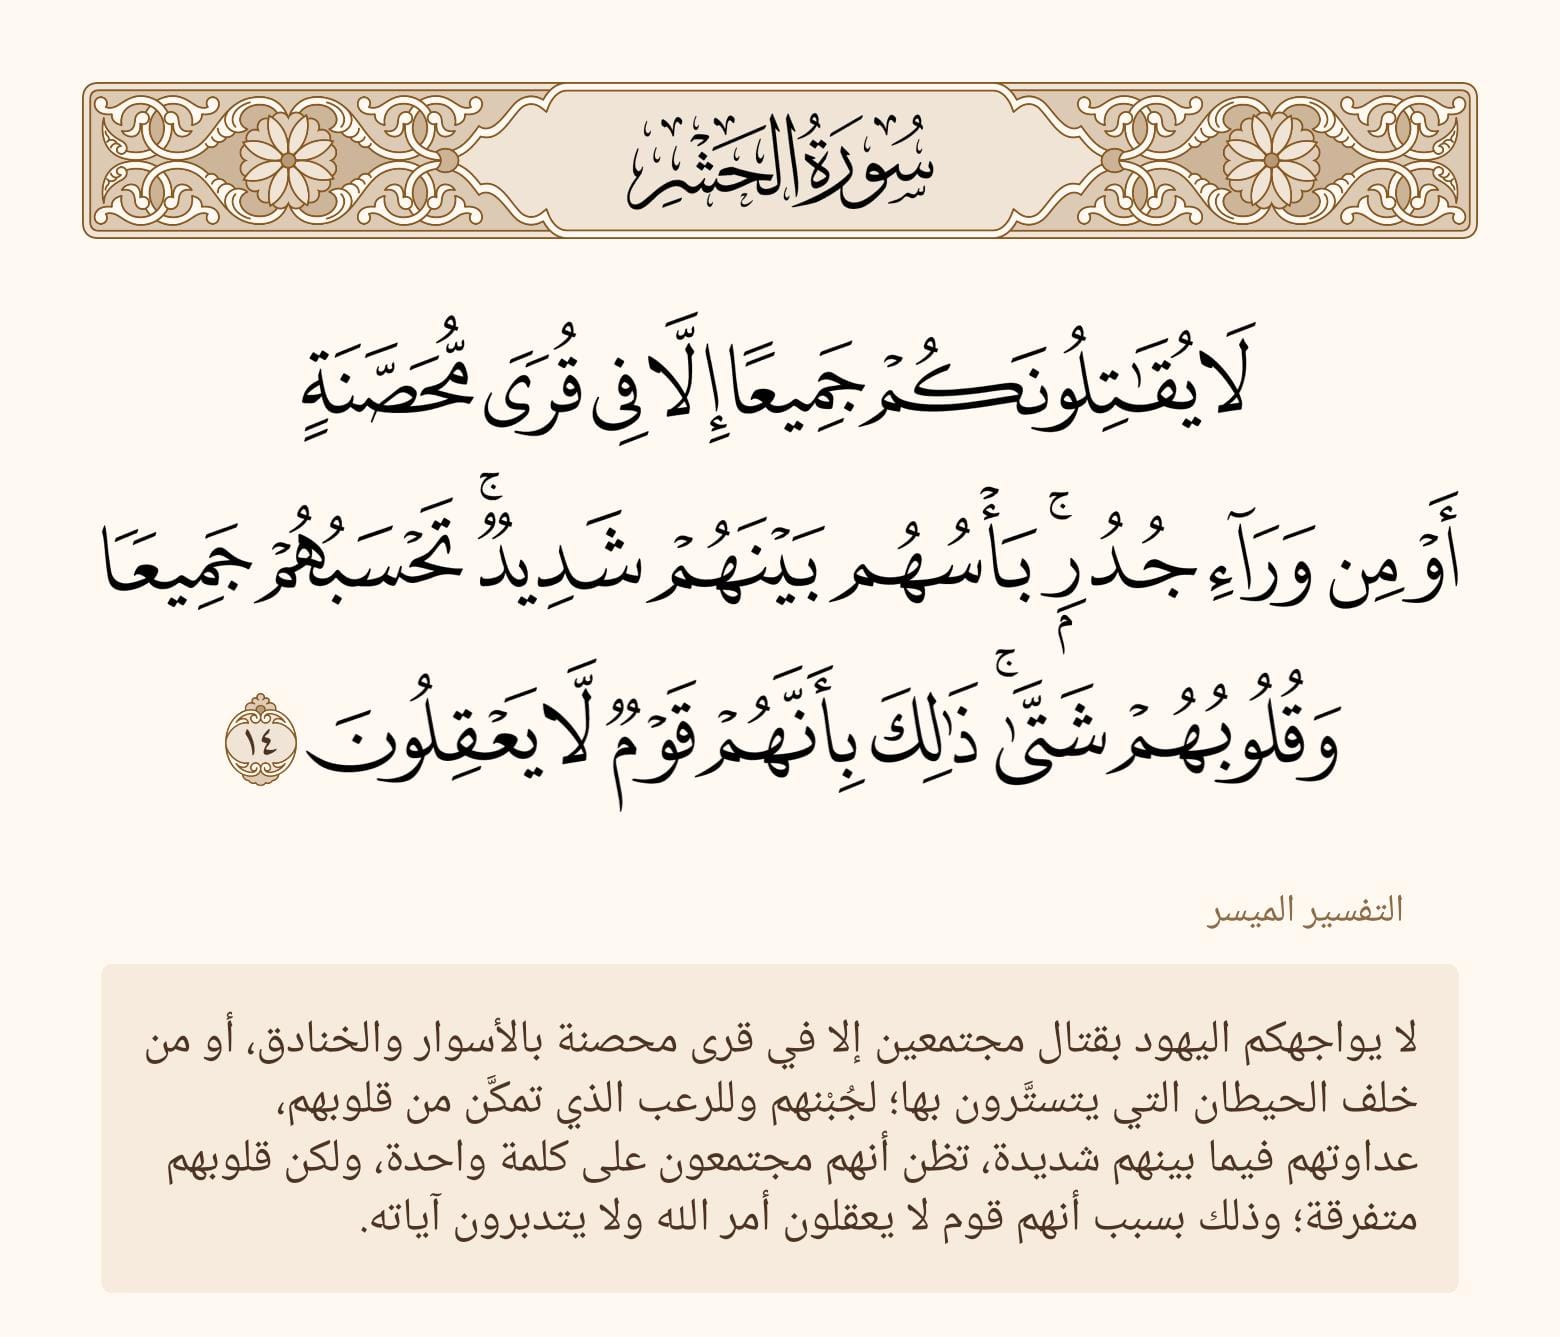 سُورَةُ الحَشْرِ
لَا يُقَٰتِلُونَكُمْ جَمِيعًا إِلَّا فِى قُرًى مُّحَصَّنَةٍ
أَوْ مِن وَرَآءِ جُدُرٍۭ ۚ بَأْسُهُم بَيْنَهُمْ شَدِيدٌ ۚ تَحْسَبُهُمْ جَمِيعًا
وَقُلُوبُهُمْ شَتَّىٰ ۚ ذَٰلِكَ بِأَنَّهُمْ قَوْمٌ لَّا يَعْقِلُونَ ١٤
التفسير الميسر
لا يواجهكم اليهود بقتال مجتمعين إلا في قرى محصنة بالأسوار والخنادق، أو من
خلف الحيطان التي يتستَّرون بها؛ لجُبْنهم وللرعب الذي تمكَّن من قلوبهم،
عداوتهم فيما بينهم شديدة، تظن أنهم مجتمعون على كلمة واحدة، ولكن قلوبهم
متفرقة؛ وذلك بسبب أنهم قوم لا يعقلون أمر الله ولا يتدبرون آياته.